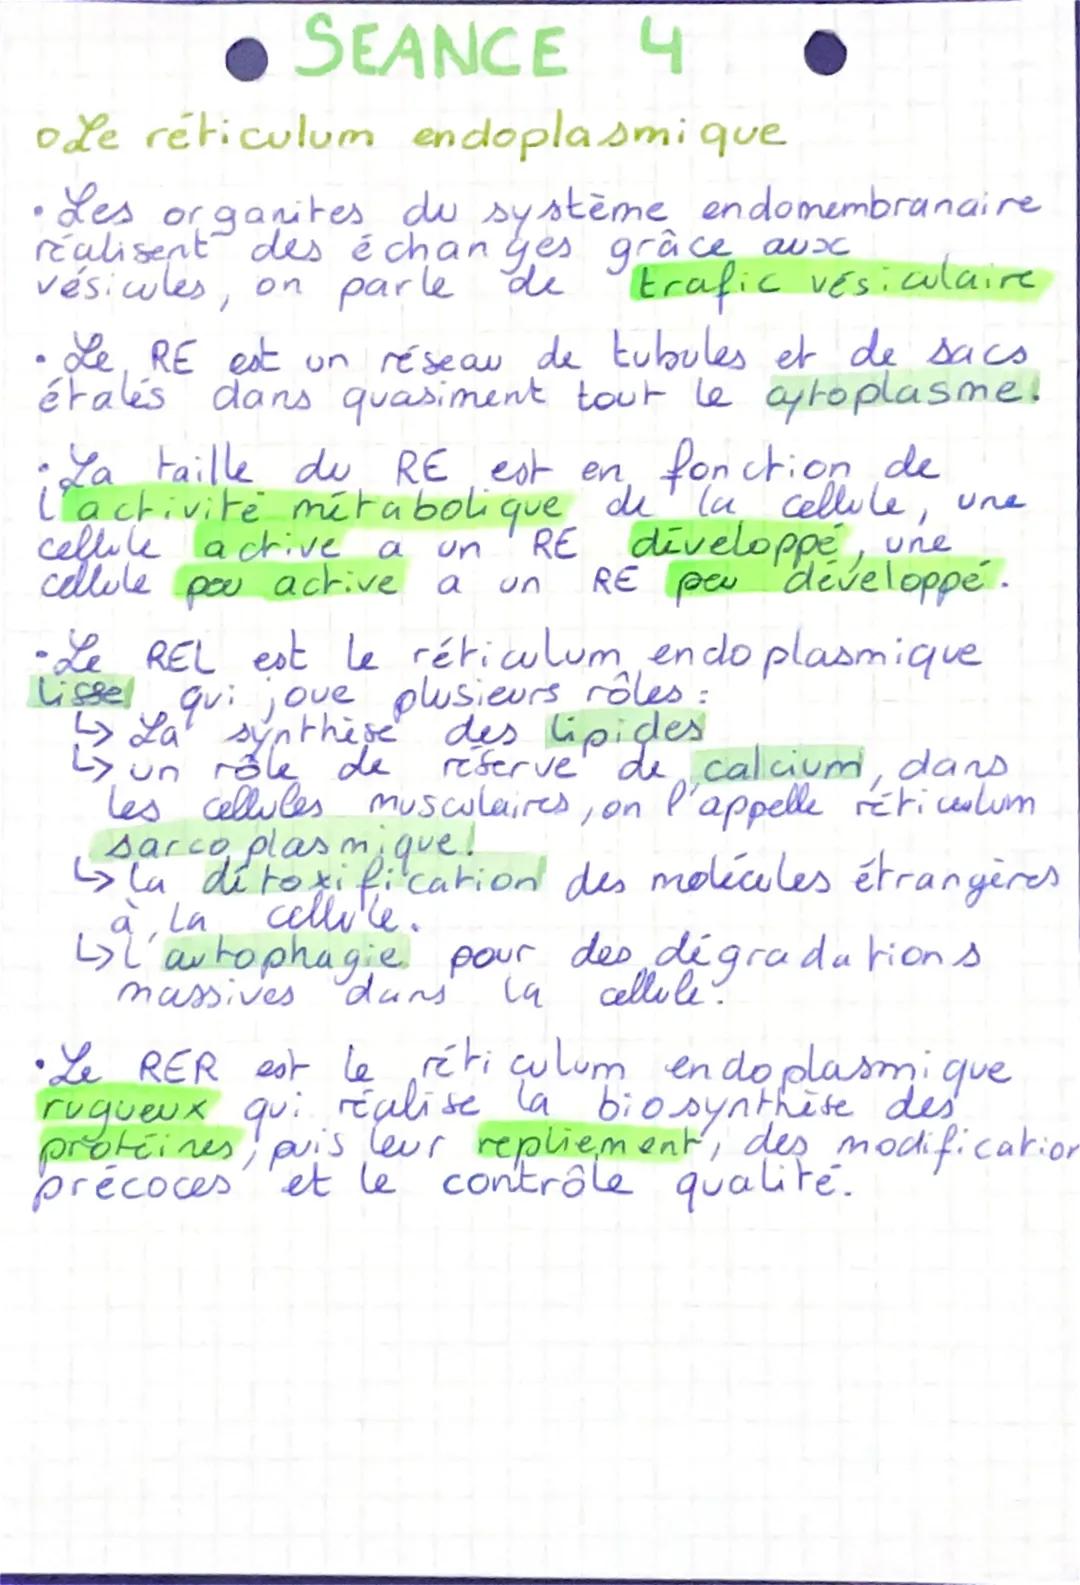 SEANCE 4
o Le réticulum endoplasmique
• Les organites du système endomembranaire
réalisent des échanges grâce aux
vésicules, on parle de trafic vésiculaire
• Le RE est un réseau de tubules et de sacs
étalés dans quasiment tout le cytoplasme.
• La taille du RE est en fonction de
l'activité métabolique de la cellule, une
cellule active a un RE développé, une
cellule peu active a un RE peu développé.
• Le REL est le réticulum endoplasmique
lisse qui joue plusieurs rôles :
↳ La synthèse des lipides
↳ un rôle de réserve de calcium, dans
les cellules musculaires, on l'appelle réticulum
sarcoplasmique.
↳ la détoxification des molécules étrangères
à la cellule.
↳ l'autophagie pour des dégradations
massives dans la cellule.
• Le RER est le réticulum endoplasmique
rugueux qui réalise la biosynthèse des
protéines, puis leur repliement, des modification
précoces et le contrôle qualité.